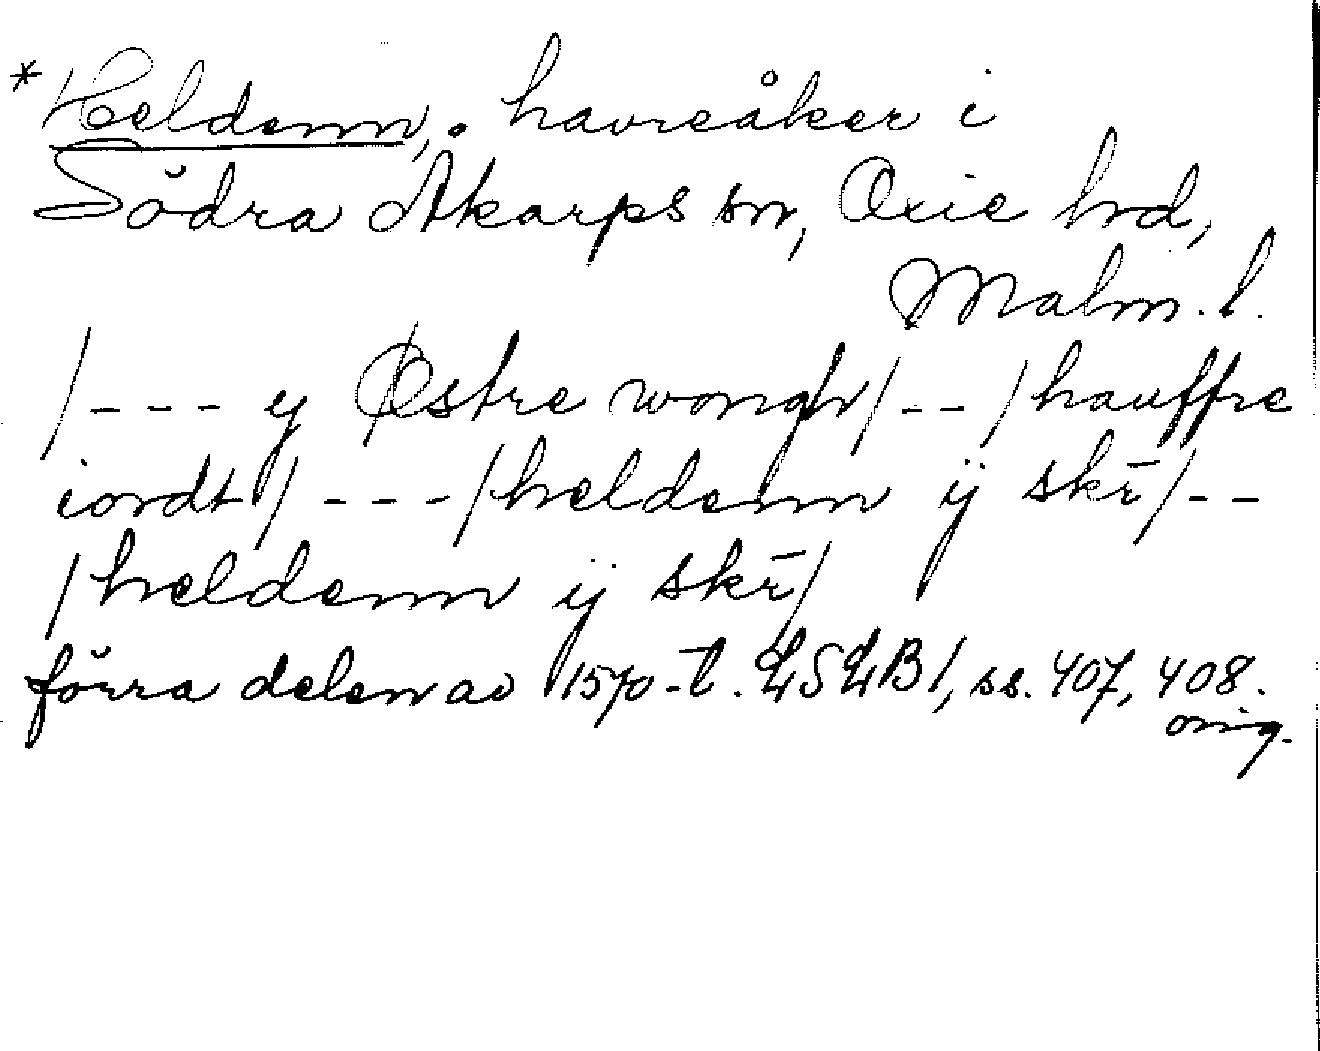 *Heldenn, havreåker i
Södra Åkarps sn, Oxie hrd,
Malm. l.
/--- y Østre wongh/--/hauffre
iordt/---/heldenn ij skr̄/--
/heldenn ij skr̄/
förra delen av 1570-t. LSLB 1, ss. 407, 408.
orig.